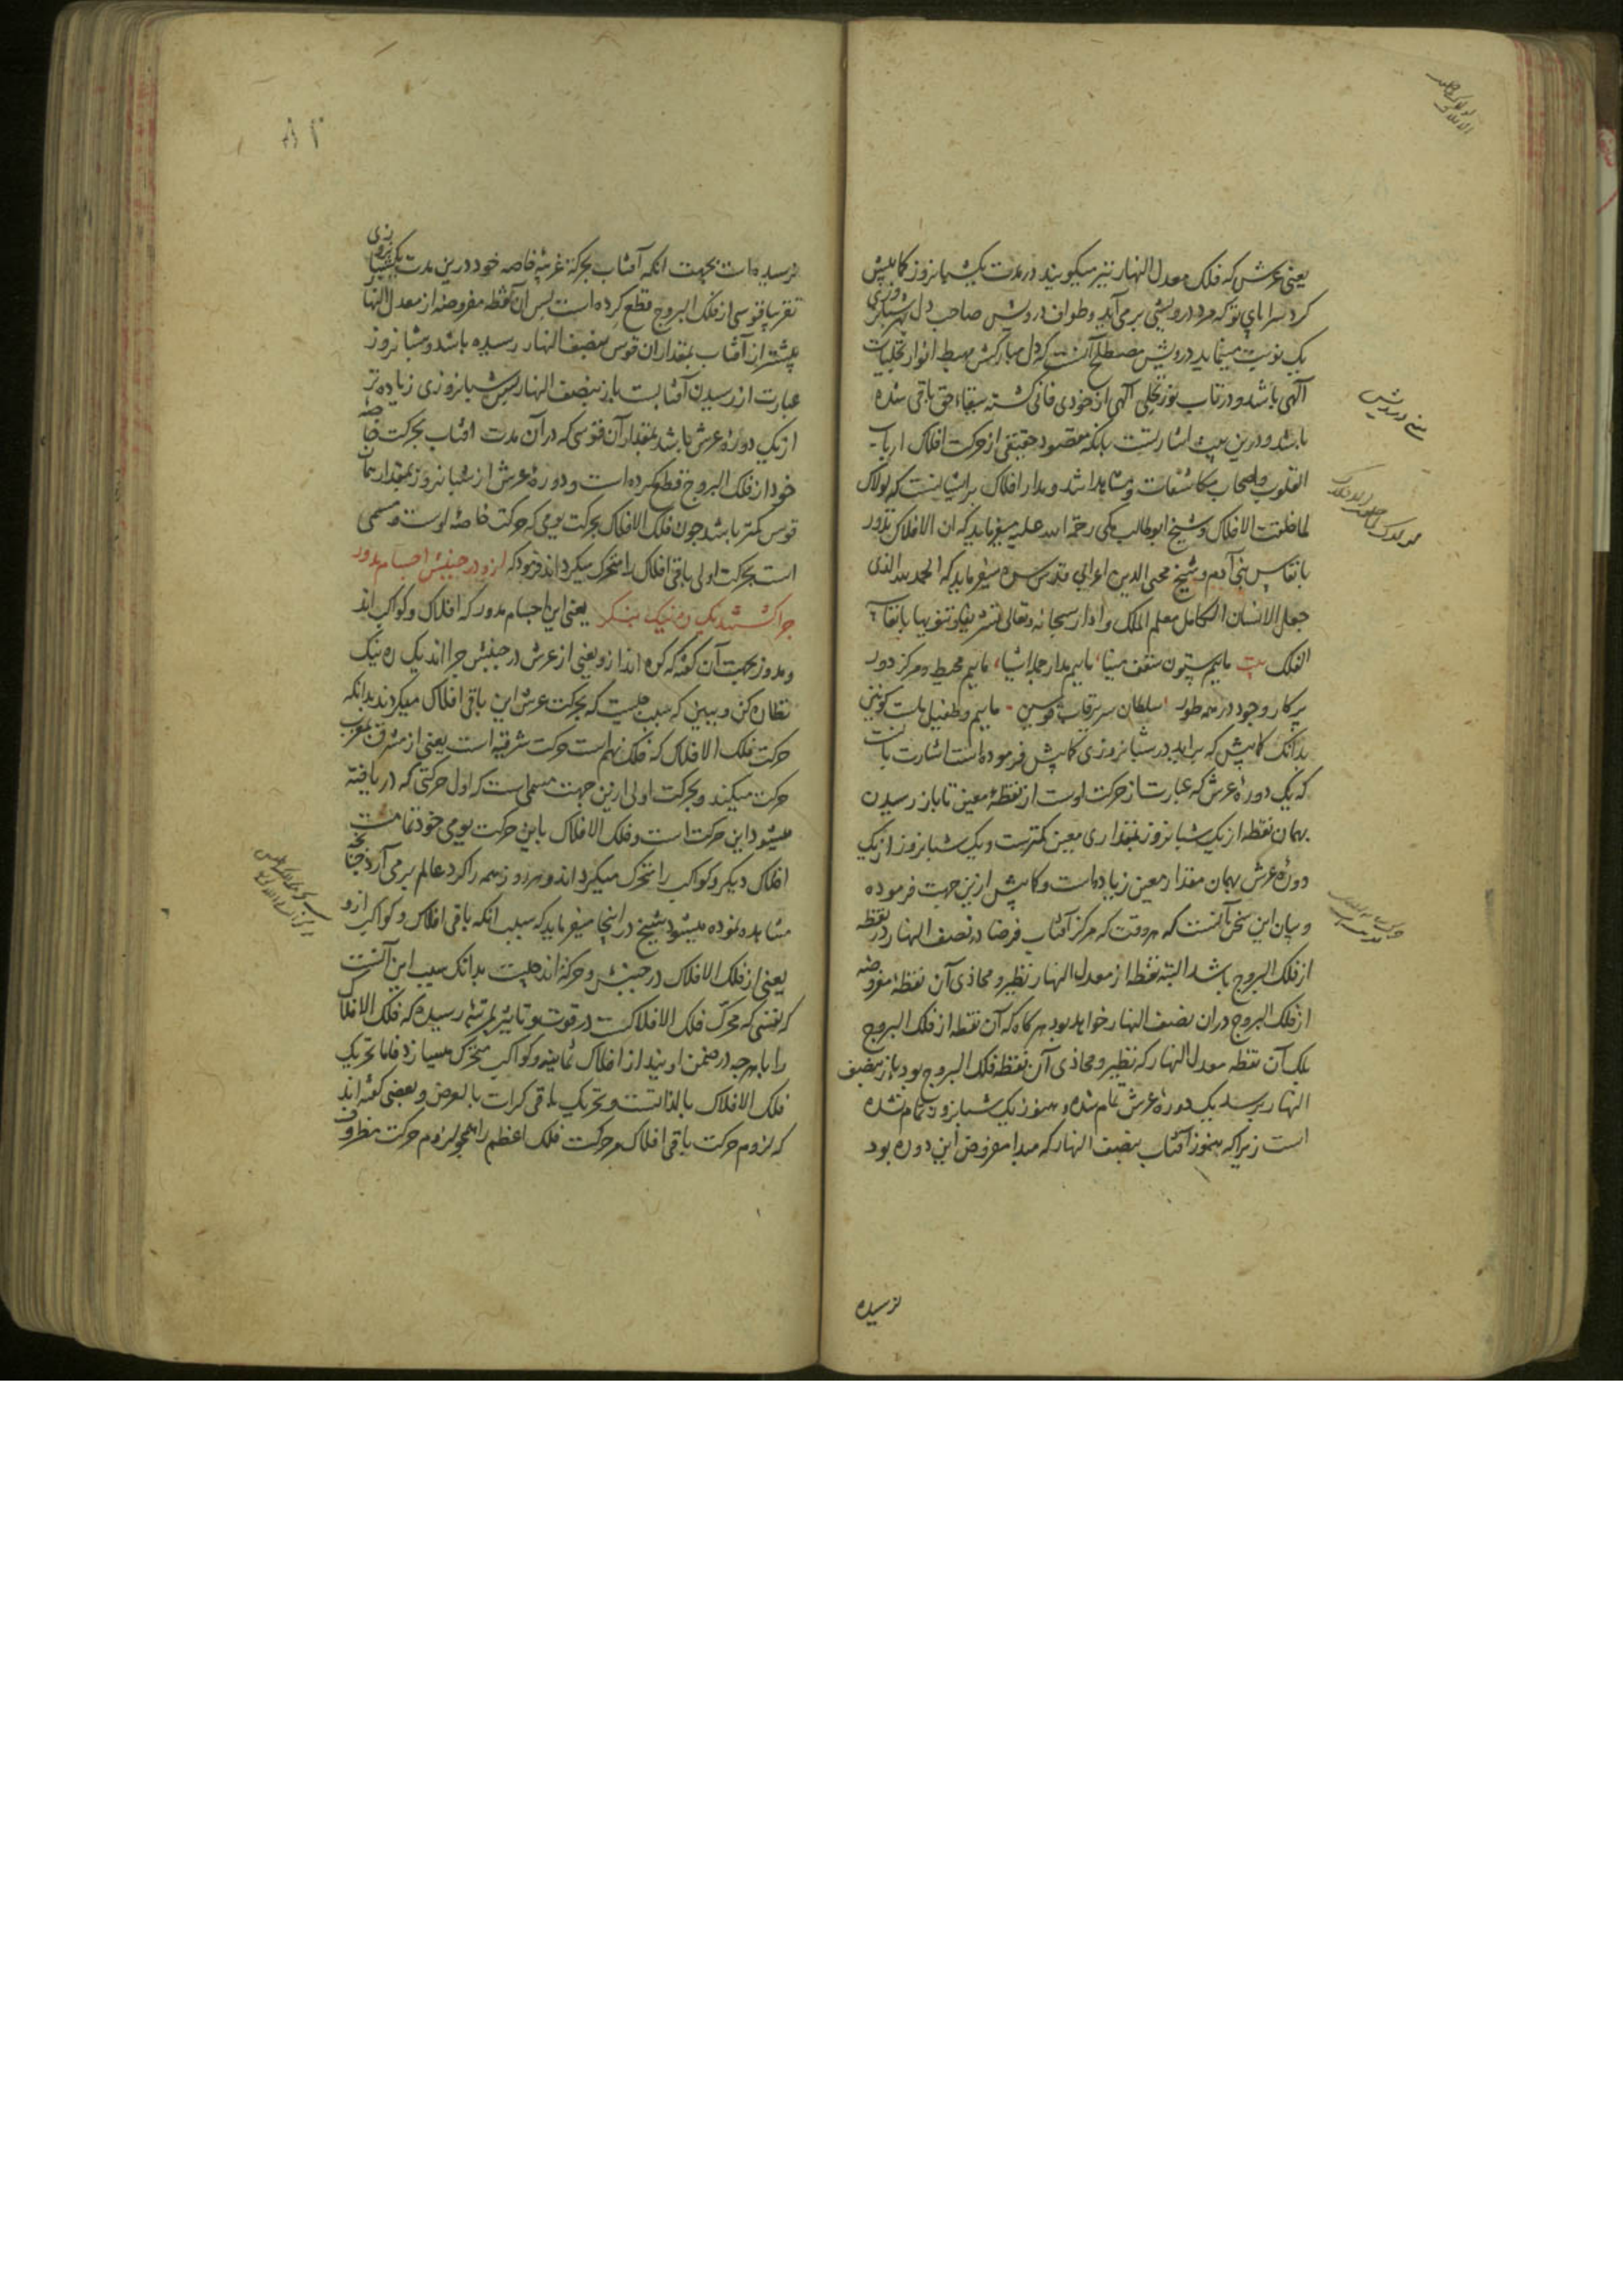 یعنی عرش که فلک معدل النهار نیز میگویند در مدت یک شبانروز کابیش
کرد سرا پای تو که مرد درویشی بر می آید و طواف درویش صاحب دل بهر شبانروزی
یک نوبت مینماید درویش مصطلح آنست که دل مبارکش مهبط انوار تجلیات
آلهی باشد و در تاب نور تجلی آلهی از خودی فانی کشته ببقاء حق باقی شده
باشد و درین بیت اشارتست بانکه مقصود حقیقی از حرکت افلاک ارباب
القلوب و اصحاب مکاشفات و مشاهدات اند و مدار افلاک بر ایشانست که لولاک
لما خلقت الافلاک و شیخ ابوطالب مکی رحمة الله علیه میفرماید که ان الافلاک تدور
بانفاس بنی آدم و شیخ محیی الدین اعرابی قدس سره میفرماید که الحمد لله الذی
جعل الانسان الکامل معلم الملک و ادار سبحانه و تعالی تشریفا و تنویها بانفاسه
الفلک بیت ماییم ستون سقف مینا، ماییم مدار جمله اشیا، ماییم محیط و مرکز دور
پرکار وجود در همه طور، سلطان سریر قاب قوسین، ماییم و طفیل ماست کونین
بدانک کابیش که براید در شبانروزی کابیش فرموده است اشارت بانست
که یک دورۀ عرش که عبارت از حرکت اوست از نقطۀ معین تا باز رسیدن
بهمان نقطه از یک شبانروز بمقداری معین کمترست و یک شبانروز از یک
دورۀ عرش بهمان مقدار معین زیاده است و کابیش ازین جهت فرموده
و بیان این سخن آنست که هر وقت که مرکز آفتاب فرضا در نصف النهار در نقطه
از فلک البروج باشد البته نقطه از معدل النهار نظیر و محاذی آن نقطۀ مفروضه
از فلک البروج در ان نصف النهار خواهد بود هرکاه که آن نقطه از فلک البروج
بلک آن نقطه معدل النهار که نظیر و محاذی آن نقطه فلک البروج بود باز بنصف
النهار برسد یک دورۀ عرش تمام شده و هنوز یک شبانروز تمام نشده
است زیرا که هنوز آفتاب بنصف النهار که مبدا مفروض این دوره بود
نرسیده
معنی درویش
۸۲
نرسیده است بجهت انکه آفتاب بحرکة غربیۀ خاصه خود درین مدت یک شبانروزی
تقریبا قوسی از فلک البروج قطع کرده است پس آن نقطه مفروضه از معدل النهار
پیشتر از آفتاب بمقدار ان قوس بنصف النهار رسیده باشد و شبانروز
عبارت از رسیدن آفتابست باز بنصف النهار پس شبانروزی زیاده تر
از یک دورۀ عرش باشد بمقدار آن قوسی که در آن مدت افتاب بحرکت خاصۀ
خود از فلک البروج قطع کرده است و دورۀ عرش از شبانروز بمقدار همان
قوس کمتر باشد چون فلک الافلاک بحرکت یومی که حرکت خاصۀ اوست و مسمی
است بحرکت اولی باقی افلاک را متحرک میکرداند فرمود که ازو در جنبش اجسام مدور
چرا کشتند یک ره نیک بنکر یعنی این اجسام مدور که افلاک و کواکب اند
و مدور بجهت آن کفته که کره اند ازو یعنی از عرش در جنبش چرا اند یک ره نیک
نظاره کن و ببین که سبب چیست که بحرکت عرش این باقی افلاک میکردند بدانکه
حرکت فلک الافلاک که فلک نهم است حرکت شرقیه است یعنی از مشرق بمغرب
حرکت میکند و بحرکت اولی ازین جهت مسمی است که اول حرکتی که دریافته
میشود این حرکت است و فلک الافلاک باین حرکت یومی خود تمامت
افلاک دیکر و کواکب را متحرک میکرداند و هر روز همه را کرد عالم بر می آرد چنانچه
مشاهده نموده میشود شیخ در اینجا میفرماید که سبب انکه باقی افلاک و کواکب ازو
یعنی از فلک الافلاک در جنبش و حرکة اند چیست بدانک سبب این آنست
که نفسی که محرک فلک الافلاکست در قوت و تاثیر بمرتبۀ رسیده که فلک الافلاک
را با هرچه در ضمن اویند از افلاک ثمانیه و کواکب متحرک میسازد فاما تحریک
فلک الافلاک بالذاتست و تحریک باقی کرات بالعرض و بعضی کفته اند
که لزوم حرکت باقی افلاک مر حرکت فلک اعظم را همچو لزوم حرکت مظروف